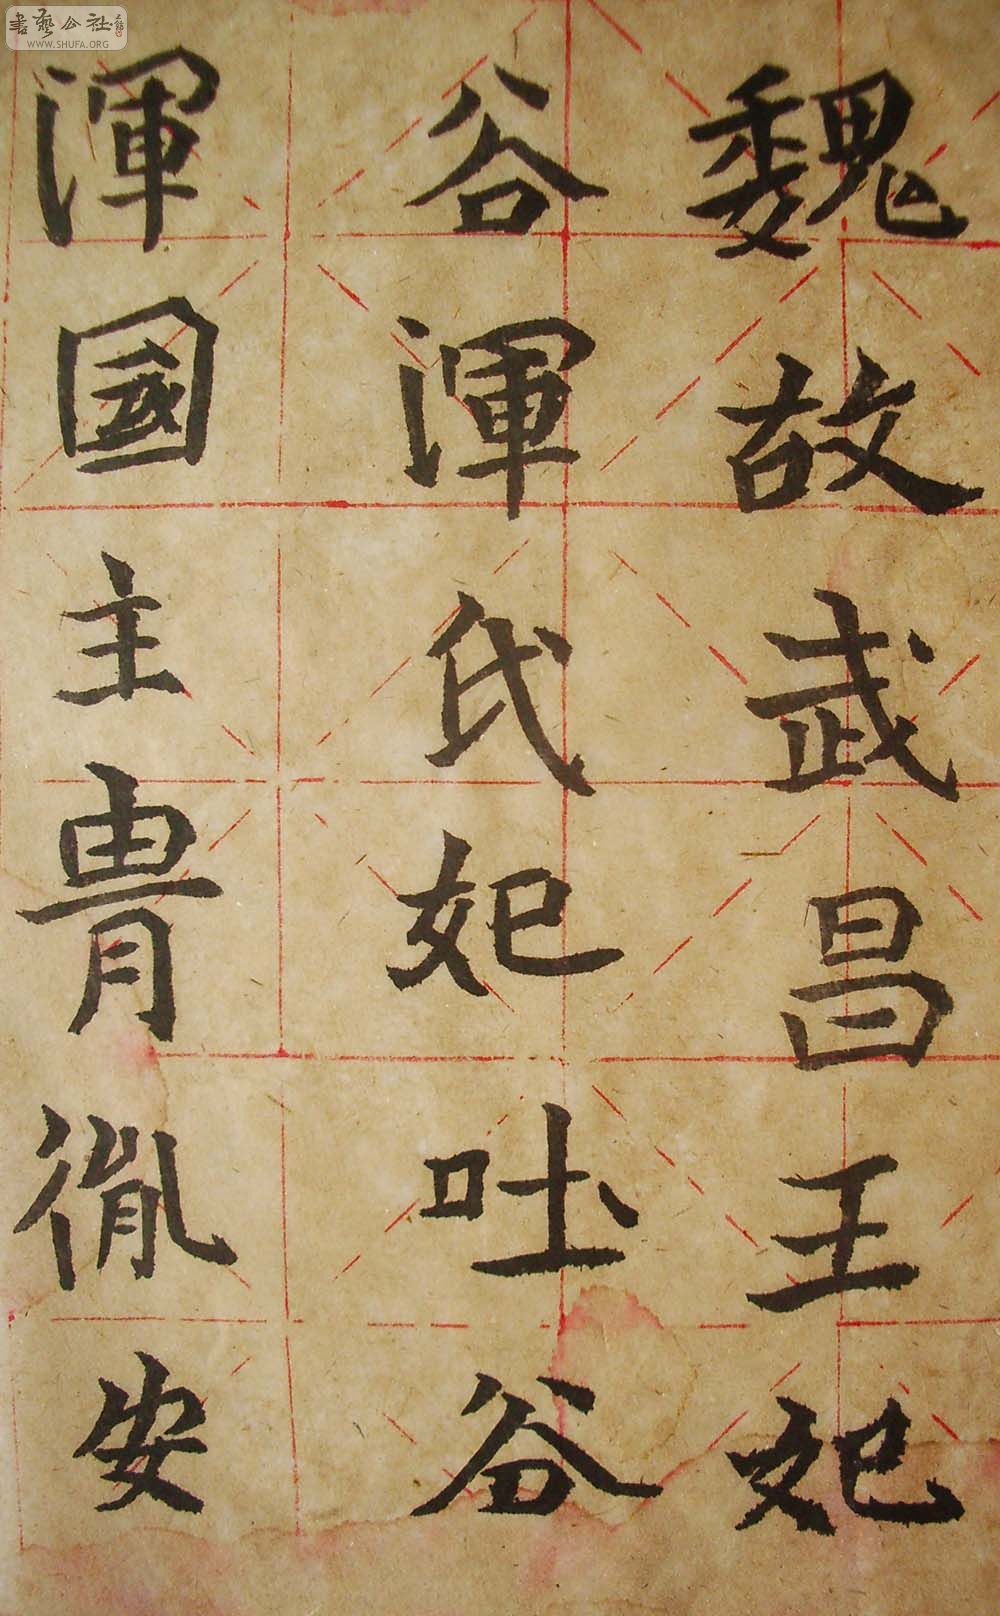 魏故武昌王妃
谷渾氏妃吐谷
渾國主胄胤安
書藝公社
WWW.SHUFA.ORG